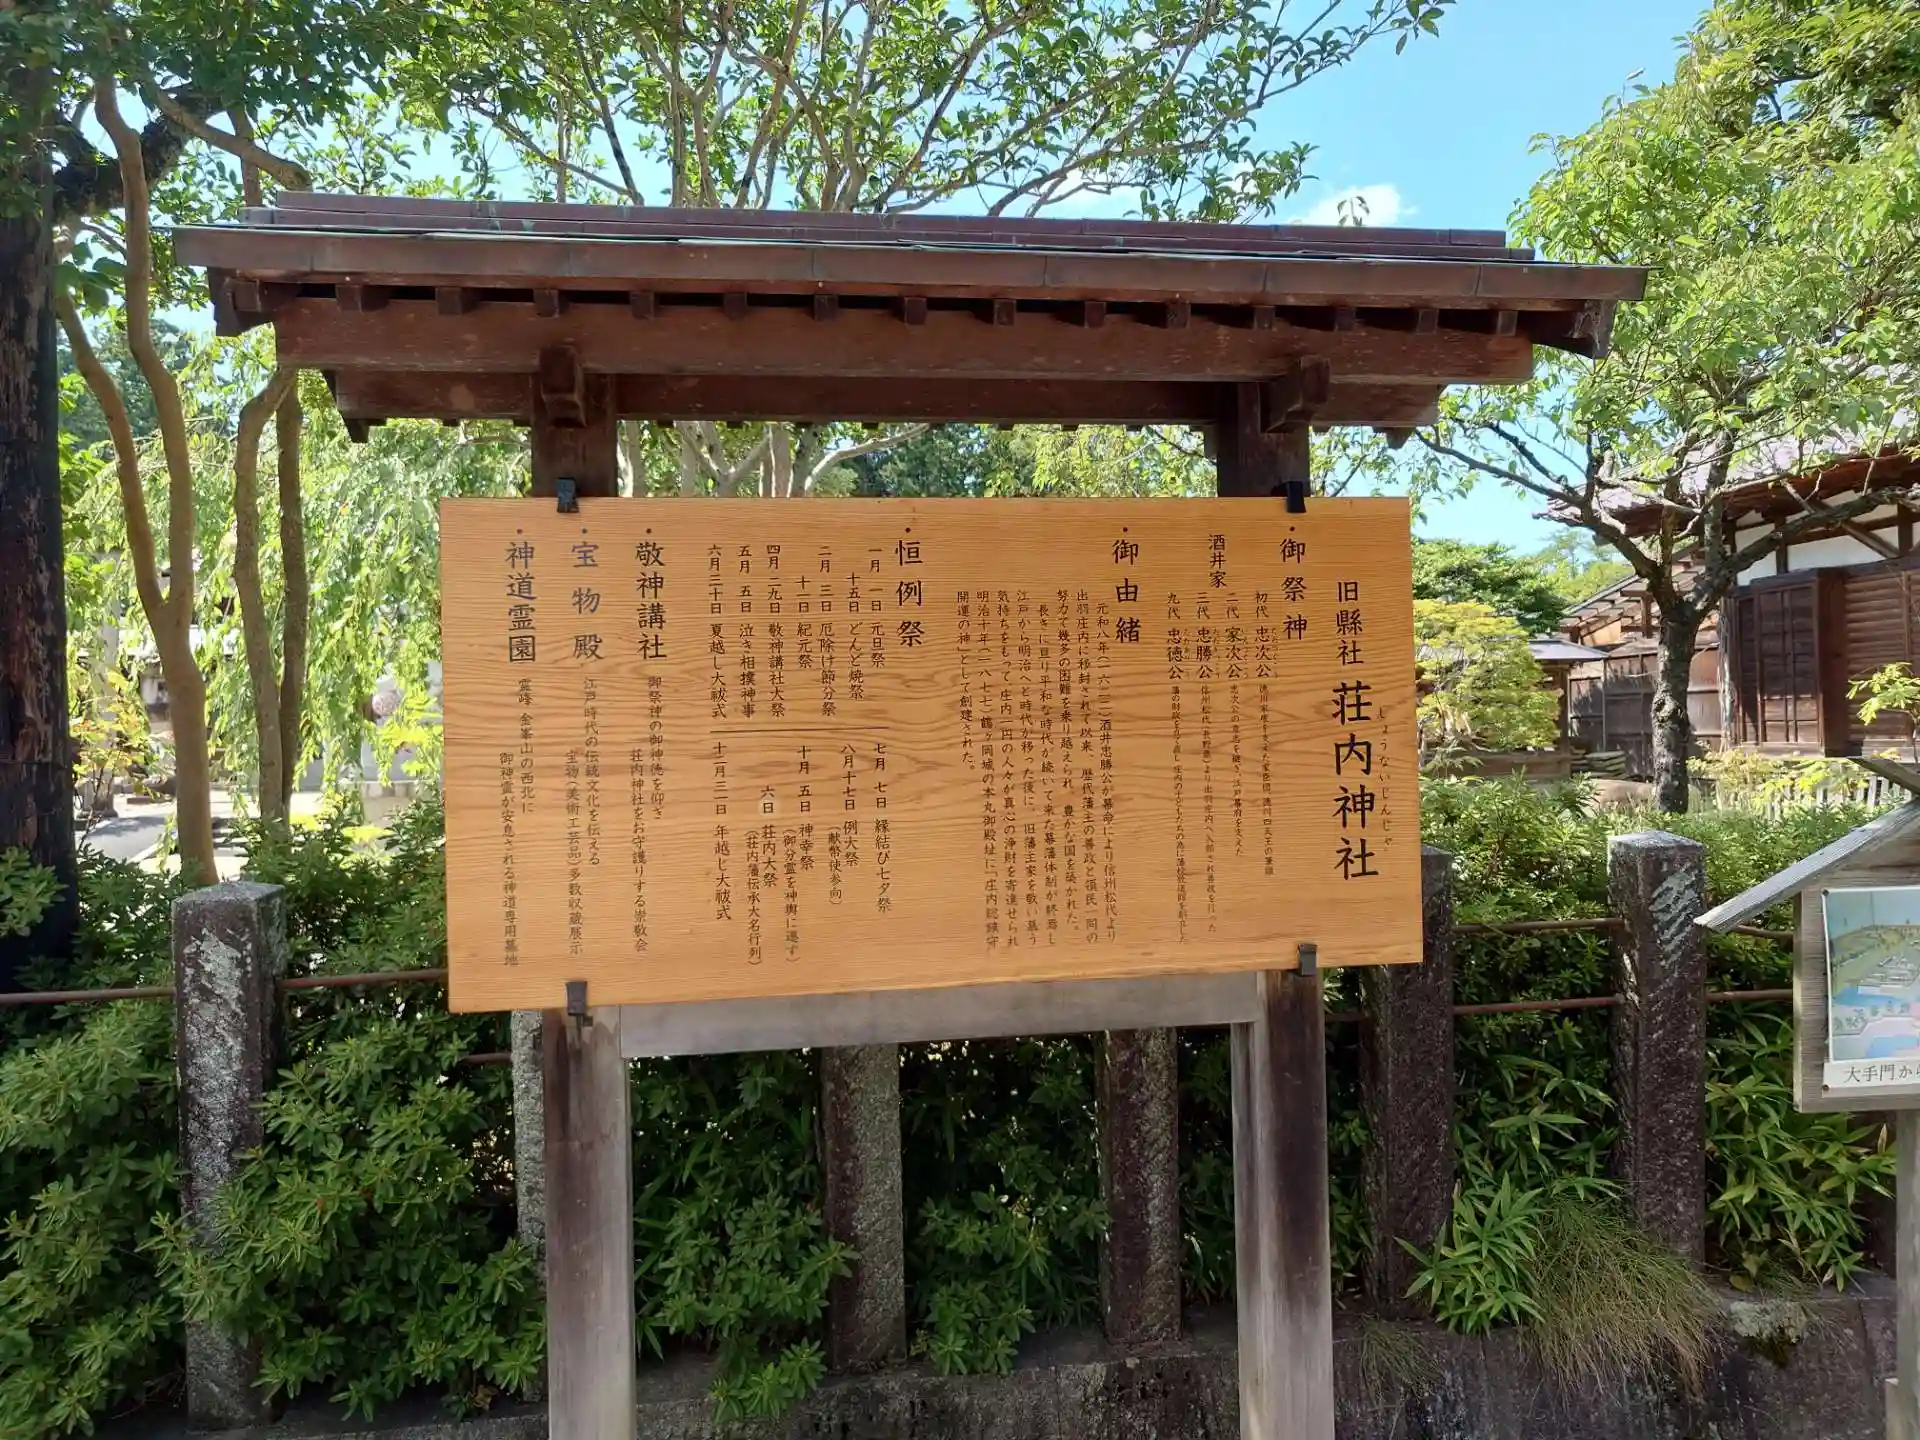 旧縣社 荘内神社
しょうないじんじゃ
・御祭神
酒井家
初代 忠次公 徳川家康を支えた家臣団、徳川四天王の筆頭
二代 家次公 忠次公の意志を継ぎ、江戸幕府を支えた
三代 忠勝公 信州松代(長野県)より出羽庄内へ入部され善政を行った
九代 忠徳公 藩の財政を立て直し庄内の子どもたちの為に藩校致道館を創立した
・御由緒
元和八年(一六二二)酒井忠勝公が幕命により信州松代より
出羽庄内に移封されて以来、歴代藩主の善政と領民一同の
努力で幾多の困難を乗り越えられ、豊かな国を築かれた。
長きに亘り平和な時代が続いて来た幕藩体制が終焉し
江戸から明治へと時代が移った後に、旧藩主家を敬い慕う
気持ちをもって庄内一円の人々が真心の浄財を寄進せられ
明治十年(一八七七)鶴ヶ岡城の本丸御殿址に「庄内総鎮守
開運の神」として創建された。
・恒例祭
一月 一日 元旦祭
十五日 どんと焼祭
二月 三日 厄除け節分祭
十一日 紀元祭
四月 二九日 敬神講社大祭
五月 五日 泣き相撲神事
六月三十日 夏越し大祓式
七月 七日 縁結び七夕祭
八月十七日 例大祭
(献幣使参向)
十月 五日 神幸祭
(御分霊を神輿に遷す)
六日 荘内大祭
(荘内藩伝承大名行列)
十二月三一日 年越し大祓式
・敬神講社 御祭神の御神徳を仰ぎ
荘内神社をお守護りする崇敬会
・宝物殿 江戸時代の伝統文化を伝える
宝物(美術工芸品)多数収蔵展示
・神道霊園 霊峰 金峯山の西北に
御神霊が安息される神道専用墓地
大手門か